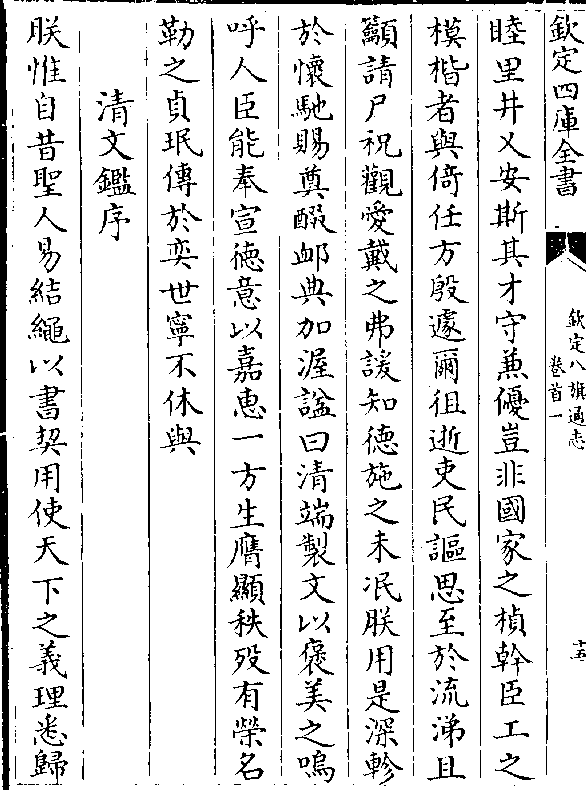 欽定四庫全書
欽定八旗通志
卷首一
十五
睦里井乂安斯其才守兼優豈非國家之楨幹臣工之
模楷者與倚任方殷遽爾徂逝吏民謳思至於流涕且
籲請尸祝觀愛戴之弗諼知德施之未泯朕用是深軫
於懷馳賜奠醊卹典加渥諡曰清端製文以褒美之嗚
呼人臣能奉宣德意以嘉惠一方生膺顯秩歿有榮名
勒之貞珉傳於奕世寧不休與
清文鑑序
朕惟自昔聖人易結繩以書契用使天下之義理悉歸